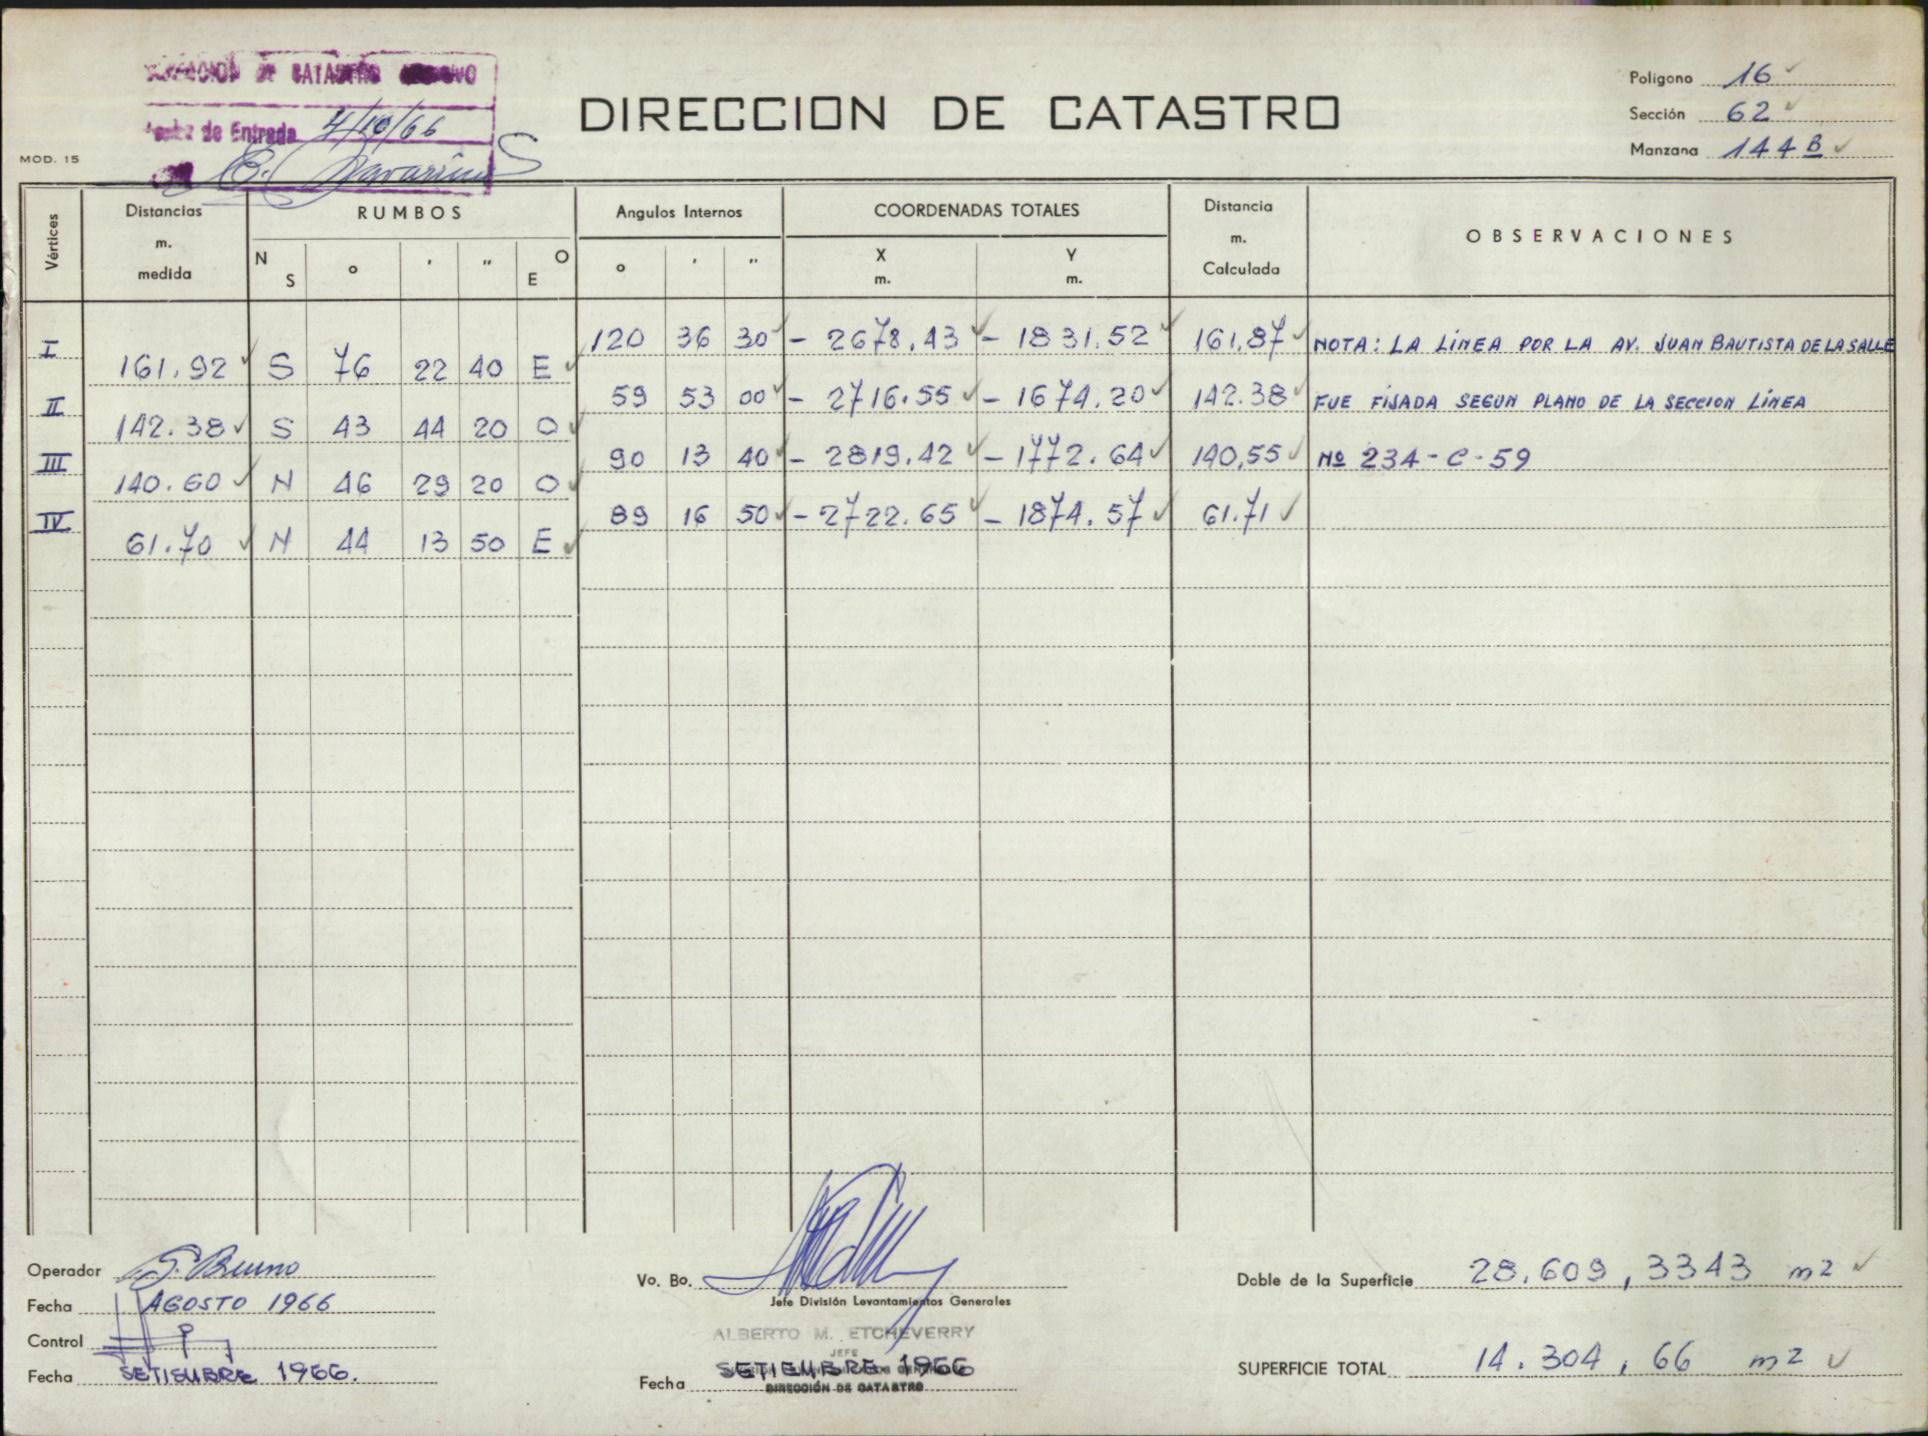 DE CATASTRO
de Entrada 4/10/66
DIRECCION DE CATASTRO
Poligono 16
Sección 62
Manzana 144 B
MOD. 15
Vértices
Distancias m. medida
RUMBOS
N S ° ' " O E
Angulos Internos
° ' "
COORDENADAS TOTALES
X m. Y m.
Distancia m. Calculada
OBSERVACIONES
I 120 36 30 - 2678.43 - 1831.52 161,87 NOTA: LA LINEA POR LA AV. JUAN BAUTISTA DE LA SALLE
161.92 S 76 22 40 E
II 59 53 00 - 2716.55 - 1674.20 142.38 FUE FIJADA SEGUN PLANO DE LA SECCION LINEA
142.38 S 43 44 20 O
III 90 13 40 - 2819.42 - 1772.64 140,55 Nº 234-C-59
140.60 N 46 29 20 O
IV 89 16 50 - 2722.65 - 1874.57 61.71
61.70 N 44 13 50 E
Operador S. Bruno
Fecha AGOSTO 1966
Control
Fecha SETIEMBRE 1966.
Vo. Bo.
Jefe División Levantamientos Generales
ALBERTO M. ETCHEVERRY
JEFE
Fecha SETIEMBRE 1966
DIRECCIÓN DE CATASTRO
Doble de la Superficie 28.609,3343 m2
SUPERFICIE TOTAL 14.304,66 m2